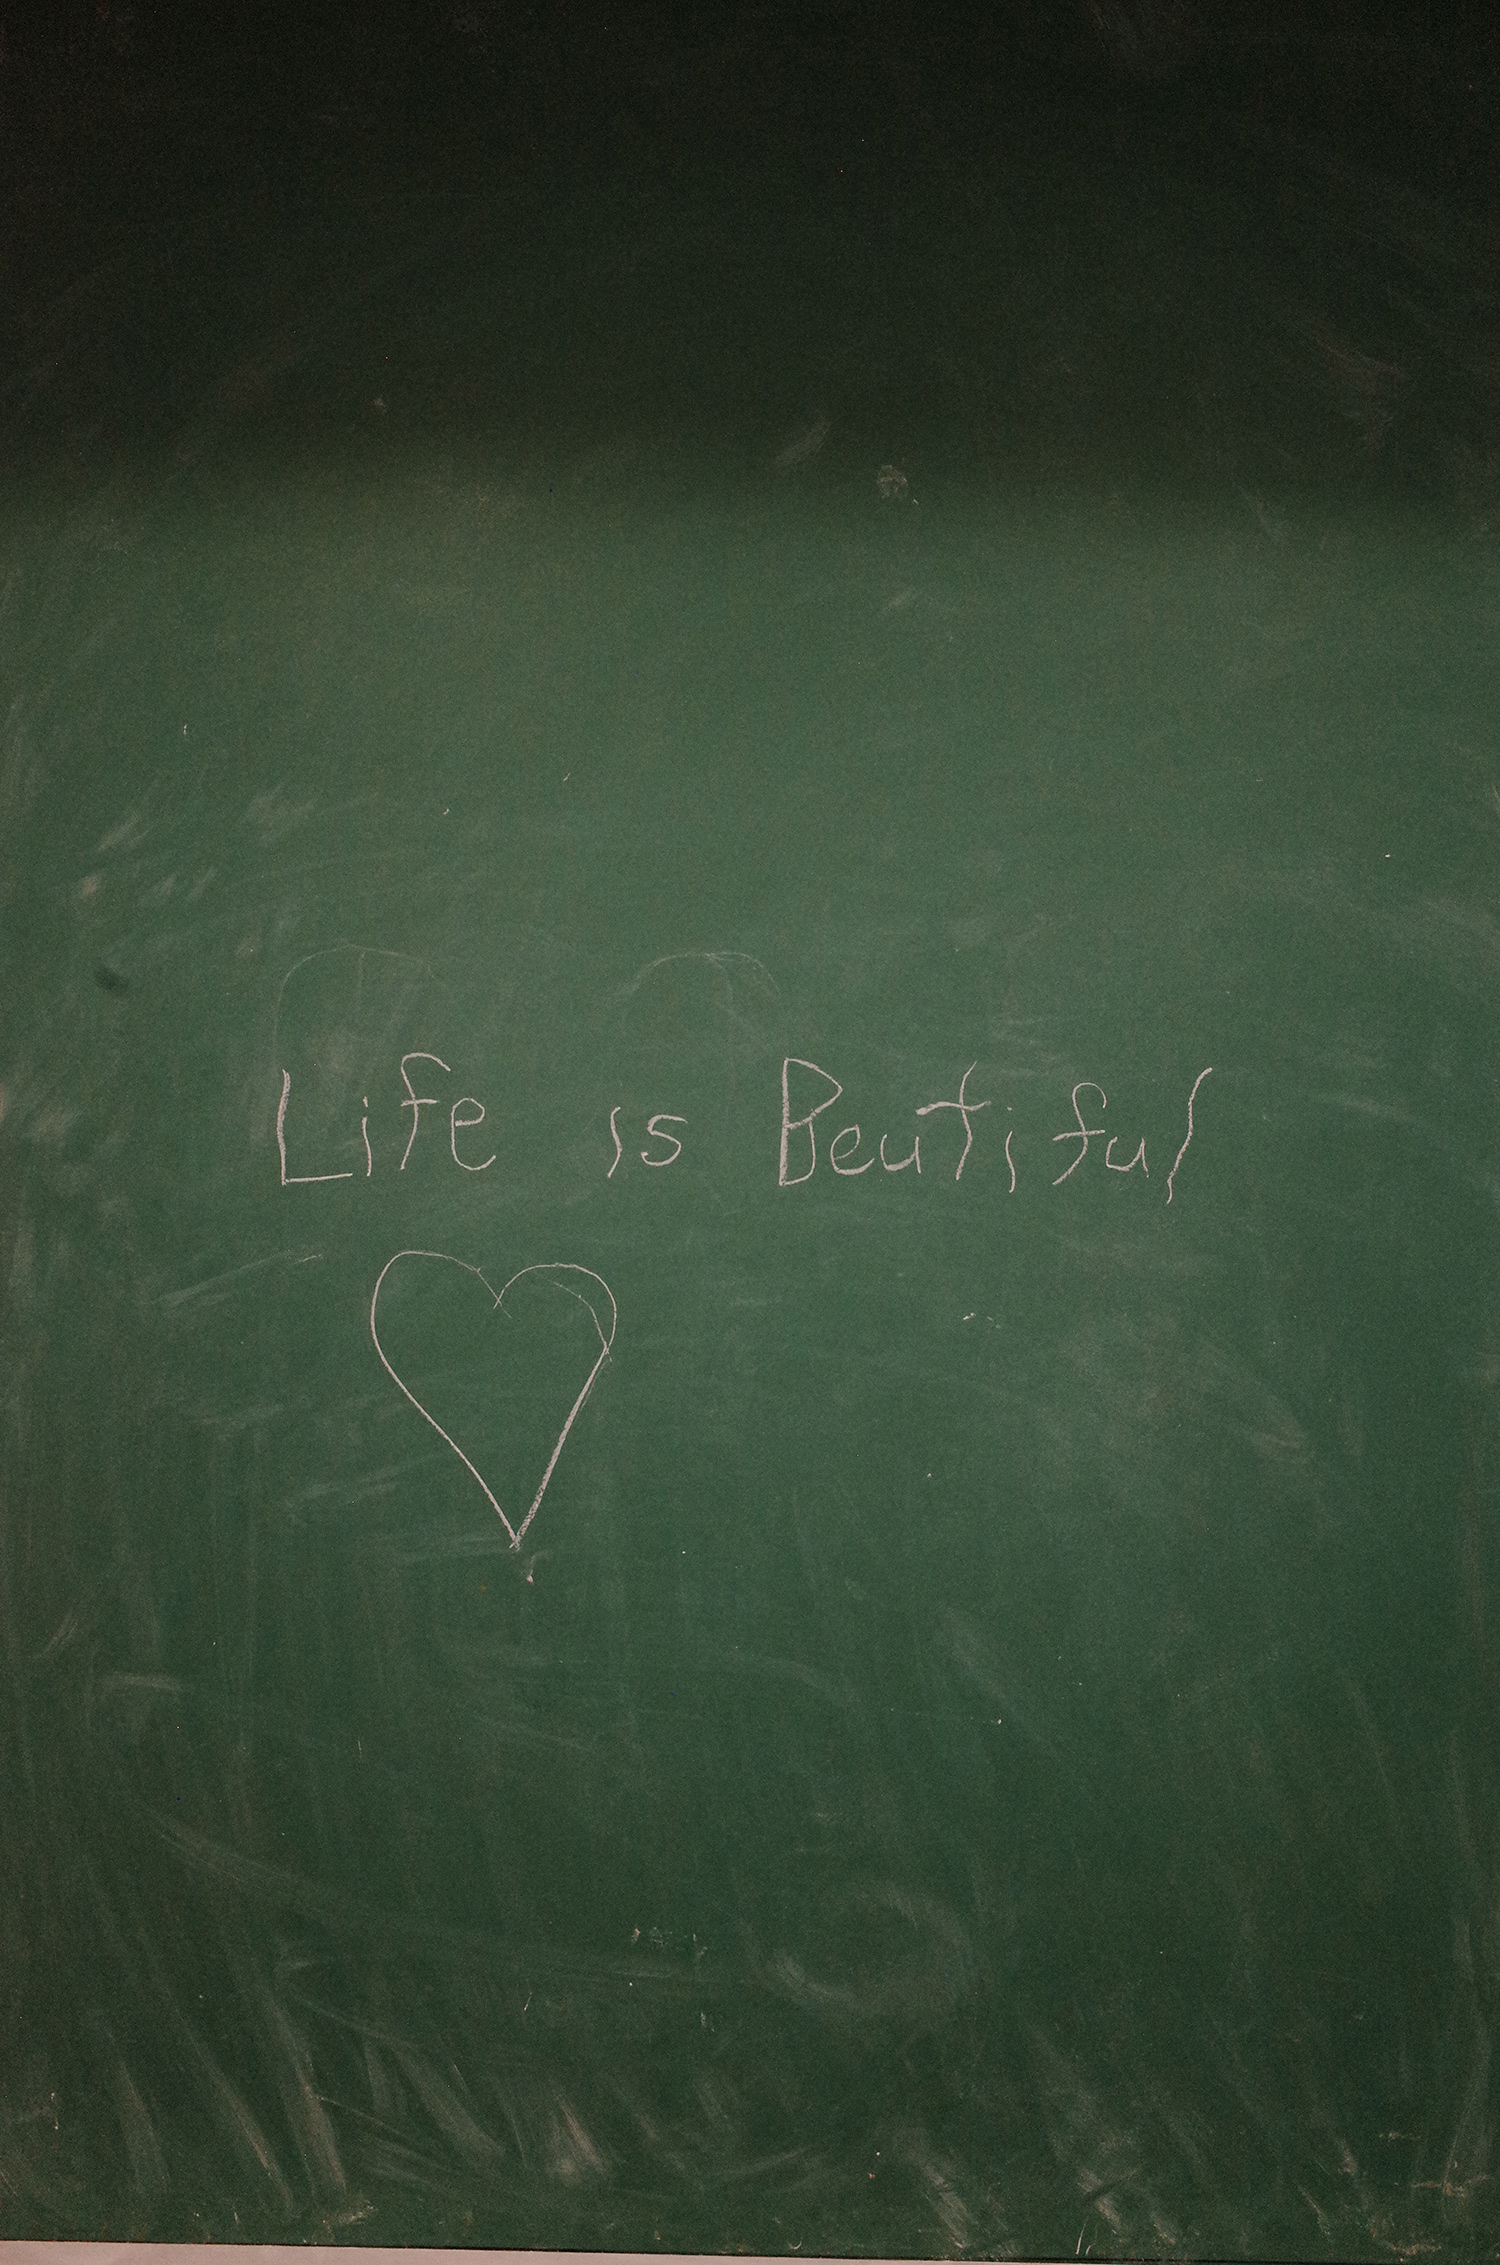 Life is Beutiful